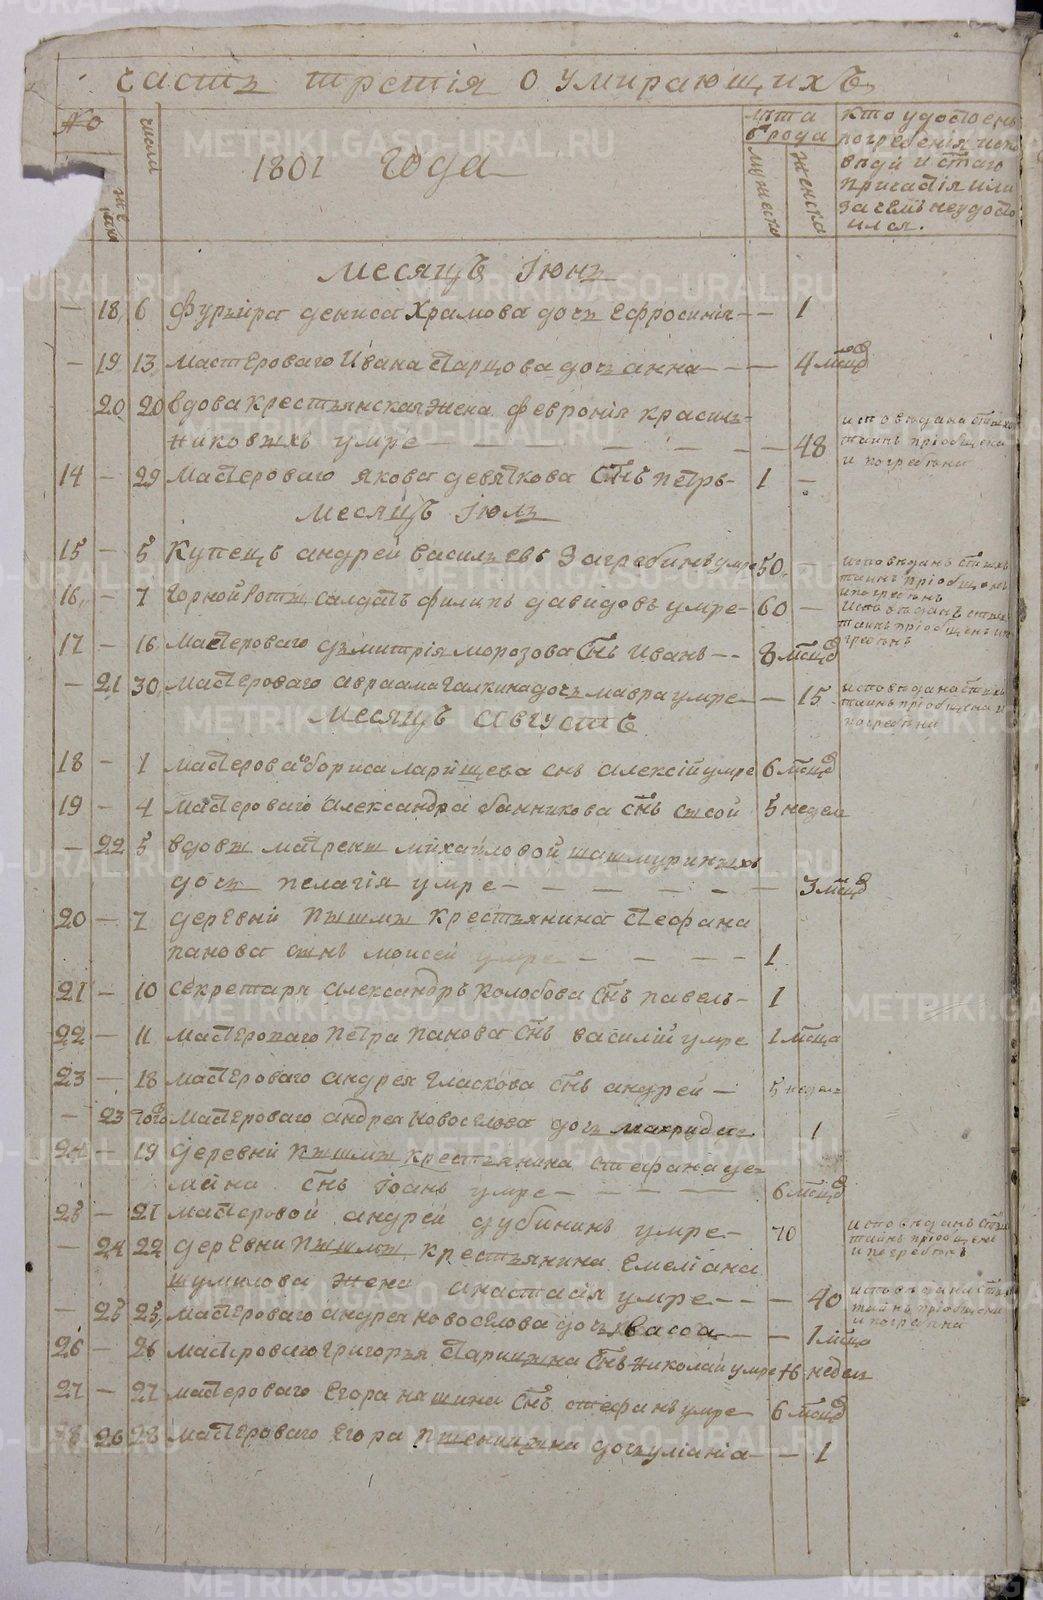 часть третія о умирающихъ
№
числа
1801 года
лѣта
отъ рода
мужеска
женска
кто удостоенъ
погребенія испо
вѣди и стаго
причастія или
за чемъ неудосто
ился.
Месяцъ Іюнь
— 18 6 фуріера дениса Храмова дочь Ефросинія — — 1
— 19 13 мастероваго Ивана Старцова дочь анна — — — 4 мсцов
20 20 вдова крестьянская жена феврония красиль
никовыхъ умре — — — — 48
исповѣдана стыхъ
таинъ пріобщена
и погребена
14 — 29 мастероваго якова девяткова снъ петръ — 1 —
Месяцъ Іюль
15 — 5 Купецъ андрей васильевъ Загребинъ умре 50 —
исповѣданъ стыхъ
таинъ пріобщенъ
и погребенъ
16 — 7 Горной роты салдатъ филипъ давидовъ умре — 60 —
исповѣданъ стыхъ
таинъ пріобщенъ и по
гребенъ
17 — 16 мастероваго дьмитрія морозова снъ Иванъ — — 8 мсцов
— 21 30 мастероваго авраама Галкина дочь мавра умре — — 15
исповѣдана стыхъ
таинъ пріобщена и
погребена
Месяцъ августъ
18 — 1 мастероваго бориса ларищева снъ алексій умре 6 мсцов
19 — 4 мастероваго александра банникова снъ сысой 5 недел
— 22 5 вдовы матрены михайловой шашмуриныхъ
дочь пелагія умре — — — — — — 3 мсцов
20 — 7 деревни пышмы крестьянина стефана
панова сынъ моисей умре — — — — 1
21 — 10 секретаря александръ колобова снъ павелъ — 1
22 — 11 мастероваго петра панова снъ василій умре 1 мсца
23 — 18 мастероваго андрея гласкова снъ андрей — 5 недел
— 23 того мастероваго андрея новоселова дочь 1
24 — 19 деревни пышмы крестьянина стефана це
снъ Іоанъ умре — — — — 6 мсцов
25 — 21 мастеровой андрей дубининъ умре — 70
исповѣданъ стых
таинъ пріобщенъ
и погребенъ
— 24 22 деревни пышмы крестьянина Емеліана
шумилова жена анастасія умре — — — 40
исповѣдана сты
таинъ пріобщена
и погребена
— 25 25 мастероваго андрея новоселова дочь васса — — 1 мсца
26 — 26 мастероваго григорья снъ николай умре 16 недел
27 — 27 мастероваго Егора снъ стефанъ умре 6 мсцов
26 28 мастероваго Егора пшеницына дочь уліаніа — — 1